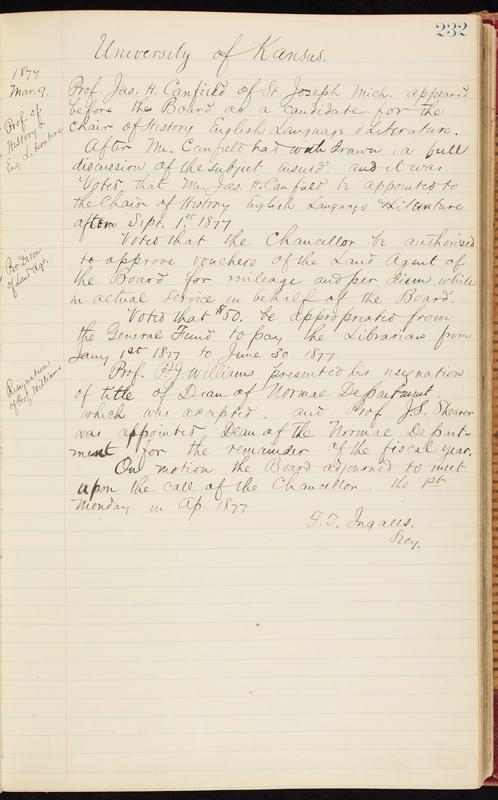 232
University of Kansas.
1877
Mar. 9.
Prof. Jas. H. Canfield of St. Joseph Mich. appeared
before the Board as a candidate for the
Chair of History English Language & Literature.
Prof. of
History &
Eng. Literature
After Mr. Canfield had withdrawn a full
discussion of the subject ensued. and it was
Voted, that Mr. Jas. H. Canfield be appointed to
the Chair of History English Language & Literature
after Sept. 1st 1877
Voted that the Chancellor be authorised
to approve vouchers of the Land Agent of
the Board for mileage and per diem while
in actual service in behalf of the Board.
Per Diem
of Land Agt.
Voted that $50. be appropriated from
the General Fund to pay the Librarian from
Jany 1st 1877 to June 30. 1877.
Prof. P.J. Williams presented his resignation
of title of Dean of Normal Department
which was accepted. and Prof J.S. Shearer
was appointed Dean of the Normal Depart-
ment for the remainder of the fiscal year.
Resignation
of Prof. Williams
On motion the Board adjourned to meet
upon the call of the Chancellor. the 1st
Monday in Ap. 1877
Ingalls.
Secy.